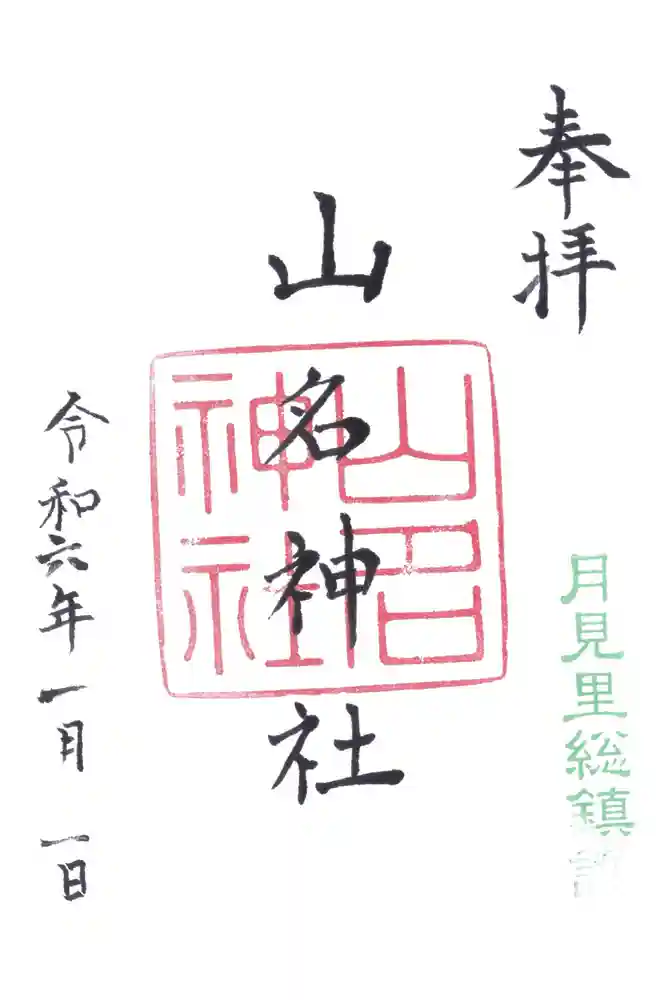 奉拝
月見里総鎮
山名神社
山名神社
令和六年一月一日